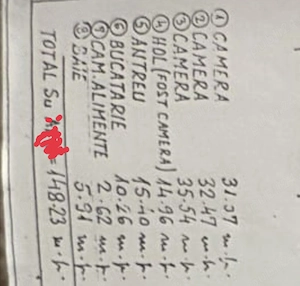 ① CAMERA 31.37 m.p.
② CAMERA 32.47 m.p.
③ CAMERA 35.54 m.p.
④ HOL (FOST CAMERA) 14.96 m.p.
⑤ ANTREU 15.10 m.p.
⑥ BUCATARIE 10.26 m.p.
⑦ CAM. ALIMENTE 2.62 m.p.
⑧ BAIE 5.91 m.p.
TOTAL Su = 148.23 m.p.